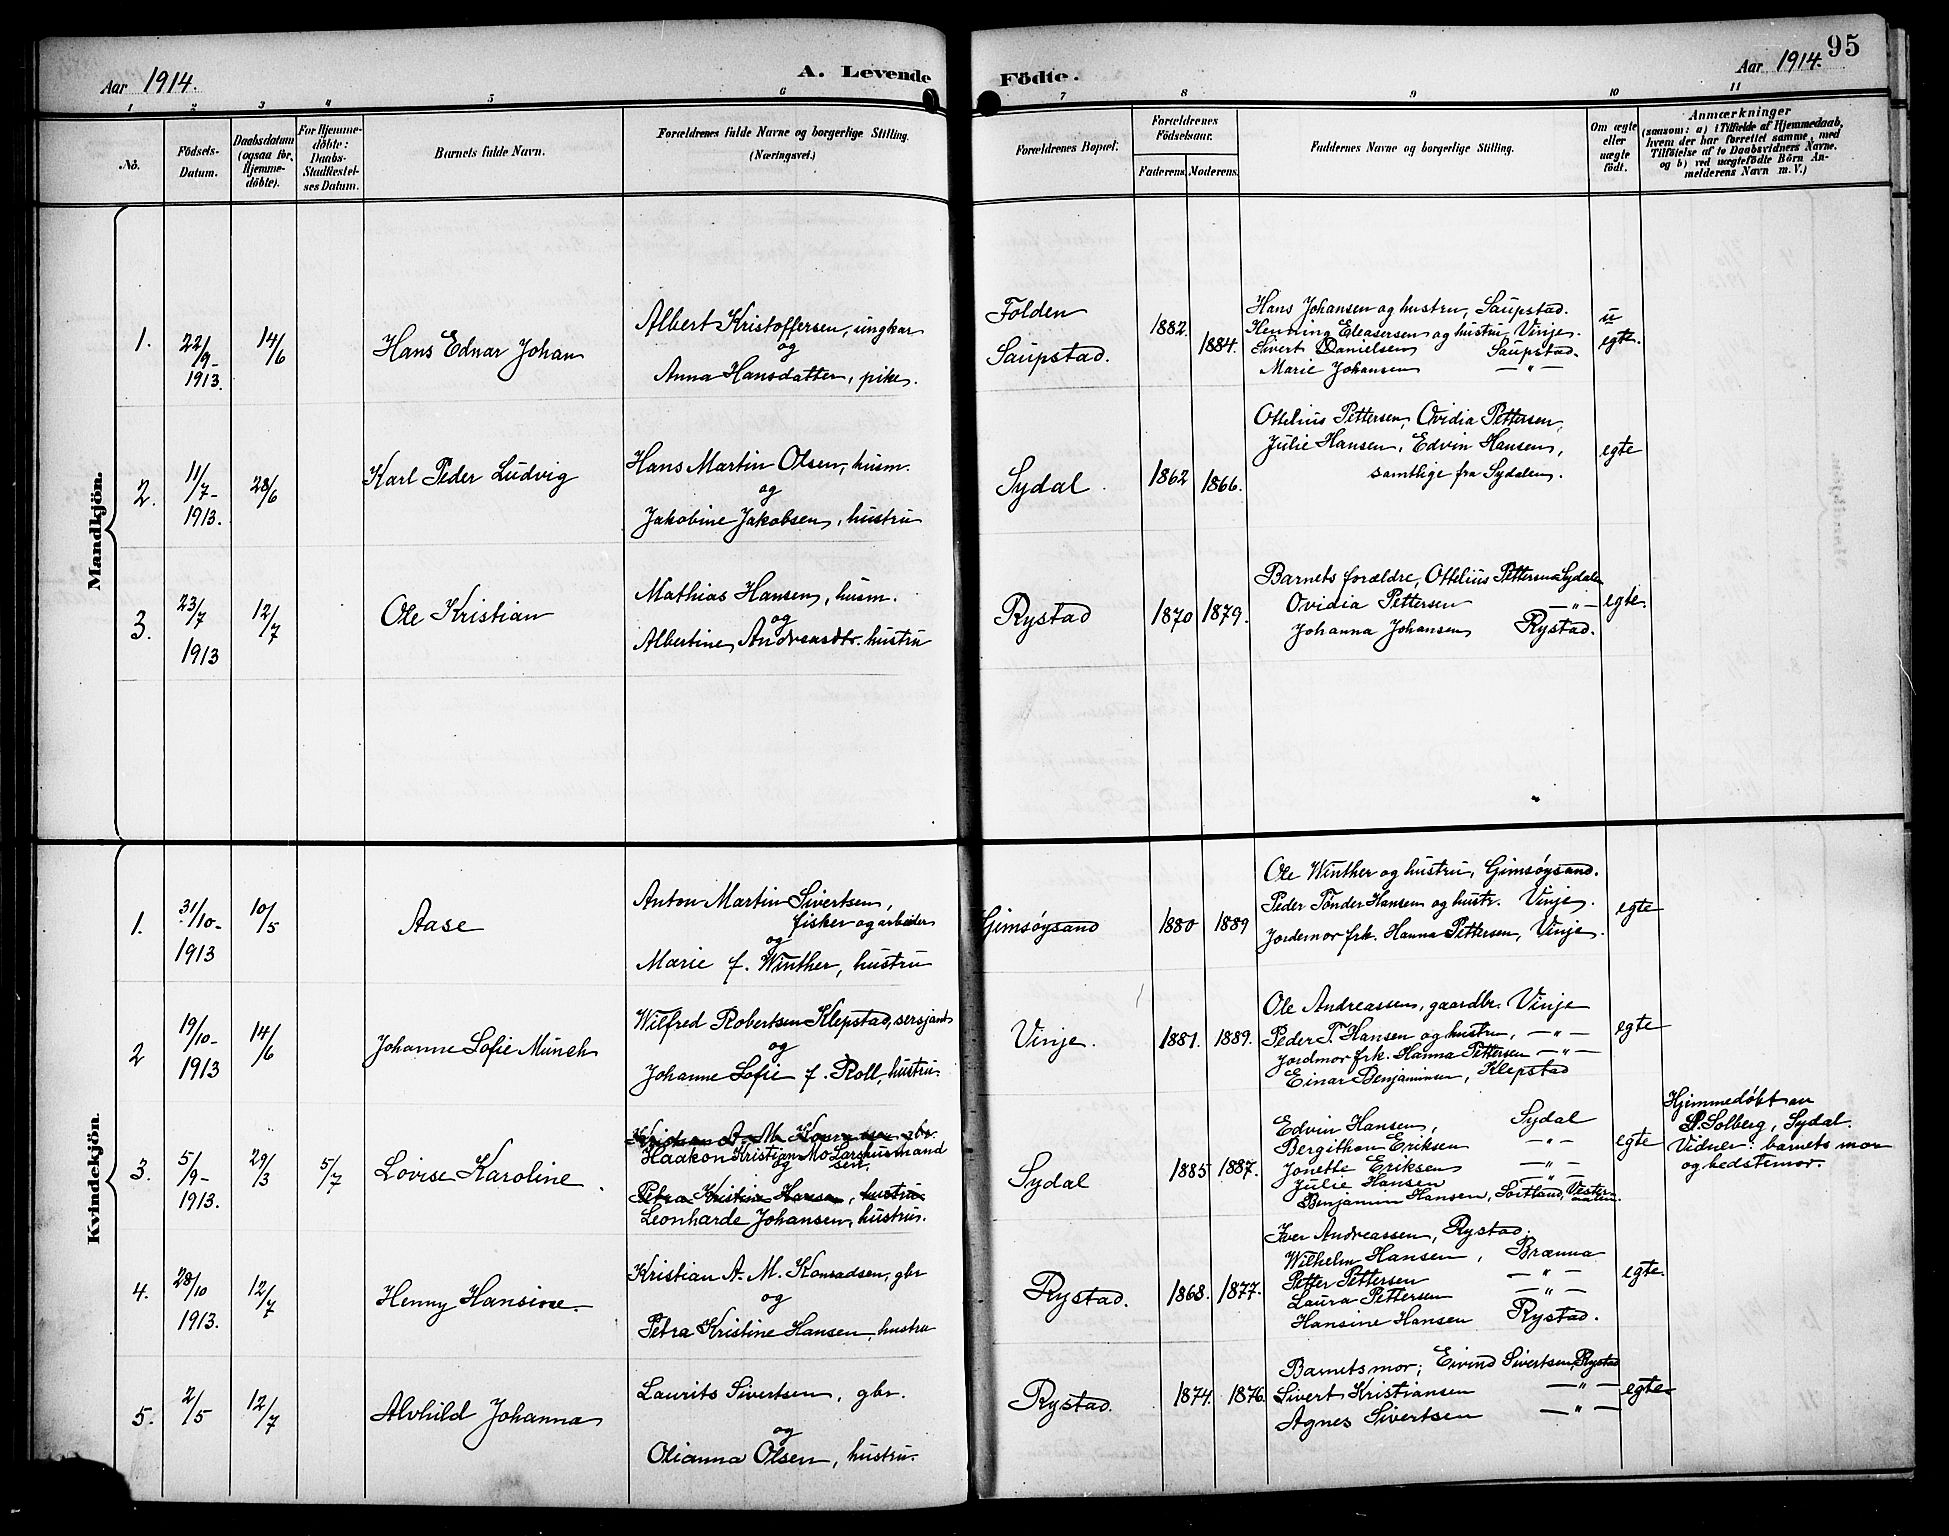 Aar 1914.
A. Levende
Födte.
Aar 1914.
95
1 2 3 4 5 6
7 8 9 10 11
No.
Födsels-
Datum.
Daabsdatum
(ogsaa for
Hjemme-
döbte).
For Hjemme-
döbte:
Daabs-
Stadfæstel-
ses Datum.
Barnets fulde Navn.
Forældrenes fulde Navne og borgerlige Stilling.
(Næringsvei.)
Forældrenes Bopæl.
Forældrenes
Födselsaar.
Faderens. Moderens.
Faddernes Navne og borgerlige Stilling.
Om ægte
eller
uægte
födt.
Anmærkninger
(saasom: a) i Tilfælde af Hjemmedaab,
hvem der har forrettet samme, med
Tilföielse af to Daabsvidners Navne.
og b) ved uægtefödte Börn An-
melderens Navn m. V.)
Mandkjön.
1.
22/9-
1913.
14/6
Hans Ednar Johan
Albert Kristoffersen, ungkar
og
Anna Hansdatter, pike.
Folden
Saupstad.
1882.
1884.
Hans Johansen og hustru, Saupstad.
Henning Eleasersen og hustru, Vinje.
Sivert Danielsen Saupstad.
Marie Johansen — " —
u
egte.
2.
11/7-
1913.
28/6
Karl Peder Ludvig
Hans Martin Olsen, husm.
og
Jakobine Jakobsen, hustru
Sydal.
1862
1866.
Ottelius Pettersen, Ovidia Pettersen,
Julie Hansen, Edvin Hansen,
samtlige fra Sydalen.
egte
3.
23/7
1913
12/7
Ole Kristian
Mathias Hansen, husm.
og
Albertine Andreasdtr. hustru
Rystad
1870
1879.
Barnets forældre, Ottelius Pettersen Sydalen
Ovidia Pettersen — " —
Johanna Johansen Rystad.
egte.
Kvindekjön.
1.
31/10-
1913
10/5
Aase
Anton Martin Sivertsen,
fisker og arbeider
og
Marie f. Winther, hustru
Gimsøysand
1880
1889
Ole Winther og hustru, Gimsøysand.
Peder Tønder Hansen og hustr. Vinje.
Jordemor frk. Hanna Pettersen, Vinje.
egte
2
19/10-
1913
14/6
Johanne Sofie Münch
Wilfred Robertsen Klepstad, sersjant
og
Johanne Sofie f. Roll, hustru.
Vinje.
1881.
1889.
Ole Andreassen, gaardbr. Vinje
Peder T. Hansen og hustru, — " —
Jordmor frk. Hanna Pettersen — " —
Einar Benjaminsen, Klepstad
egte
3.
5/9-
1913.
29/3
5/7
Lovise Karoline.
Kristian A. M. Konradsen gbr.
Haakon Kristian Mo Larshusmand
og sen.
Petra Kristine Hansen, hustru
Leonharde Johansen, hustru.
Sydal
1885
1887.
Edvin Hansen, Sydal
Bergithon Eriksen — " —
Jonette Eriksen — " —
Julie Hansen — " —
Benjamin Hansen, Sortland, Vester-
aalen.
egte
Hjemmedøbt av
P. Solberg, Sydal.
Vidner: barnets mor
og bedstemor.
4.
28/10
1913.
12/7
Henny Hansine.
Kristian A. M. Konradsen, gbr
og
Petra Kristine Hansen, hustru
Rystad.
1868.
1877.
Iver Andreassen, Rystad.
Wilhelm Hansen, Brænna
Petter Pettersen — " —
Laura Pettersen — " —
Hansine Hansen Rystad.
egte.
5.
2/5
12/7
Alvhild Johanna
Laurits Sivertsen, gbr.
og
Olianna Olsen, hustru.
Rystad.
1874.
1876.
Barnets mor; Eivind Sivertsen, Rystad
Sivert Kristiansen — " —
Agnes Sivertsen — " —
egte